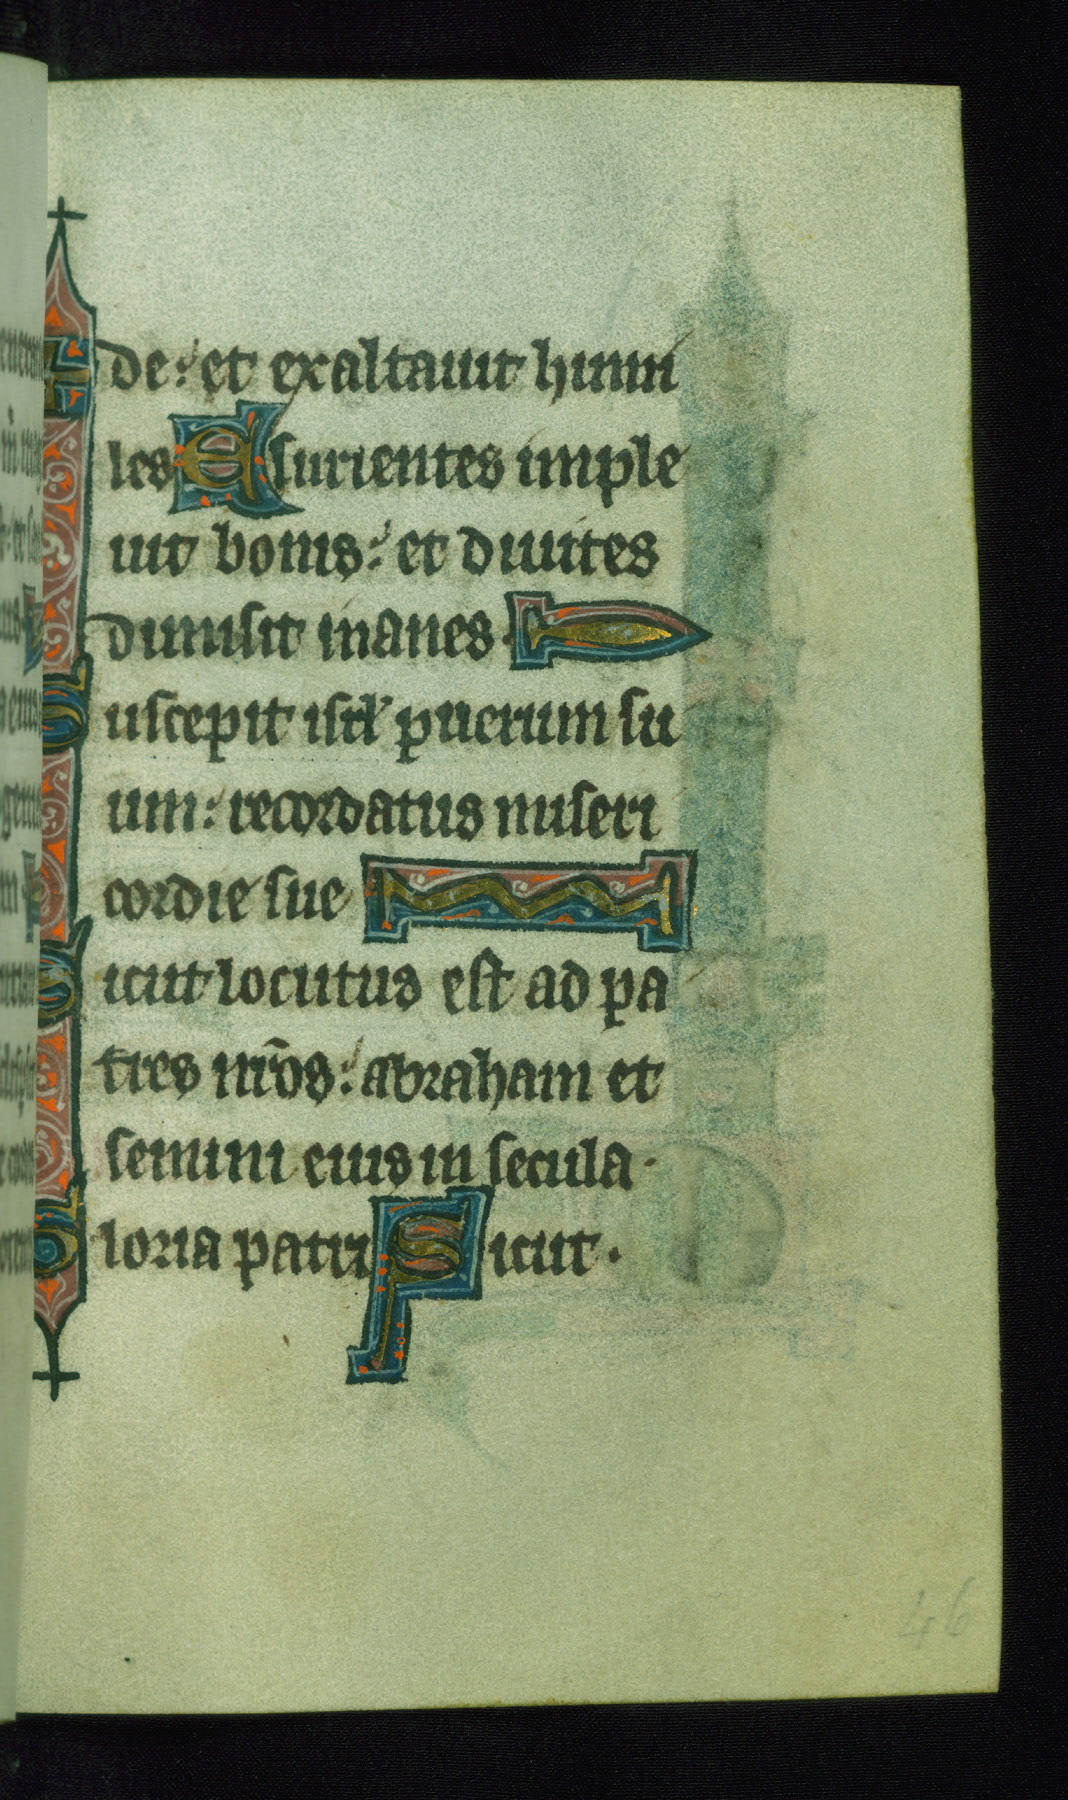 de: et exaltauit humi
les Esurientes imple
uit bonis: et diuites
dimisit inanes.
Suscepit isrl puerum su
um: recordatus miseri
cordie sue
Sicut locutus est ad pa
tres nr̄os: abraham et
semini eius in secula.
Gloria patri Sicut.
46